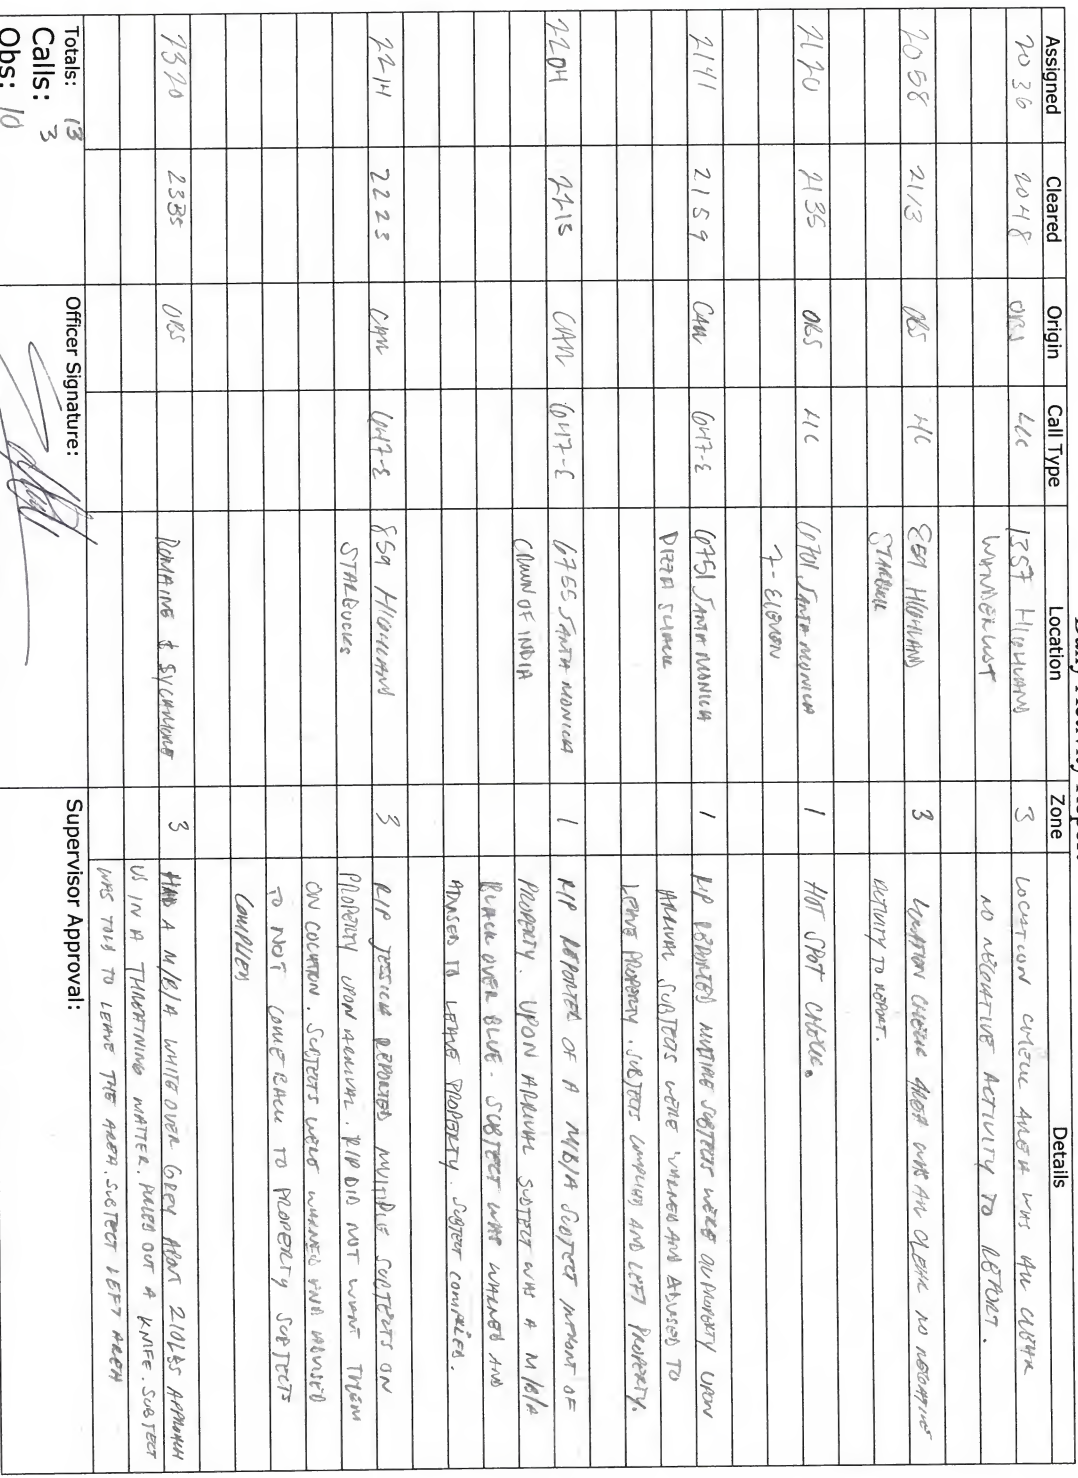 Daily Activity Report
Assigned Cleared Origin Call Type Location Zone Details
2036 2048 OBS LIC 1357 HIGHLAND 3 LOCATION CHECK AREA WAS ALL CLEAR
WANDERLUST NO NEGATIVE ACTIVITY TO REPORT.
2058 2113 OBS LIC 859 HIGHLAND 3 LOCATION CHECK AREA WAS ALL CLEAR NO NEGATIVE
STARBUCK ACTIVITY TO REPORT.
2120 2135 OBS LIC 6701 SANTA MONICA 1 HOT SPOT CHECK.
7-ELEVEN
2141 2159 CALL 647-E 6751 SANTA MONICA 1 R/P REPORTED MULTIPLE SUBJECTS WERE ON PROPERTY UPON
PIZZA SHACK ARRIVAL SUBJECTS WERE WARNED AND ADVISED TO
LEAVE PROPERTY. SUBJECTS COMPLIED AND LEFT PROPERTY.
2204 2213 CALL 647-E 6755 SANTA MONICA 1 R/P REPORTED OF A M/B/A SUBJECT INFRONT OF
CROWN OF INDIA PROPERTY. UPON ARRIVAL SUBJECT WAS A M/B/A
BLACK OVER BLUE. SUBJECT WAS WARNED AND
ADVISED TO LEAVE PROPERTY. SUBJECT COMPLIED.
2214 2223 CALL 647-E 859 HIGHLAND 3 R/P JESSICA REPORTED MULTIPLE SUBJECTS ON
STARBUCKS PROPERTY UPON ARRIVAL. R/P DID NOT WANT THEM
ON LOCATION. SUBJECTS WERE WARNED AND ADVISED
TO NOT COME BACK TO PROPERTY SUBJECTS
COMPLIED
2320 2335 OBS ROMAINE & SYCAMORE 3 HAD A M/B/A WHITE OVER GREY ABOUT 210LBS APPROACH
US IN A THREATNING MATTER. PULLED OUT A KNIFE. SUBJECT
WAS TOLD TO LEAVE THE AREA. SUBJECT LEFT AREA
Totals: 13 Officer Signature: Supervisor Approval:
Calls: 3
Obs: 10